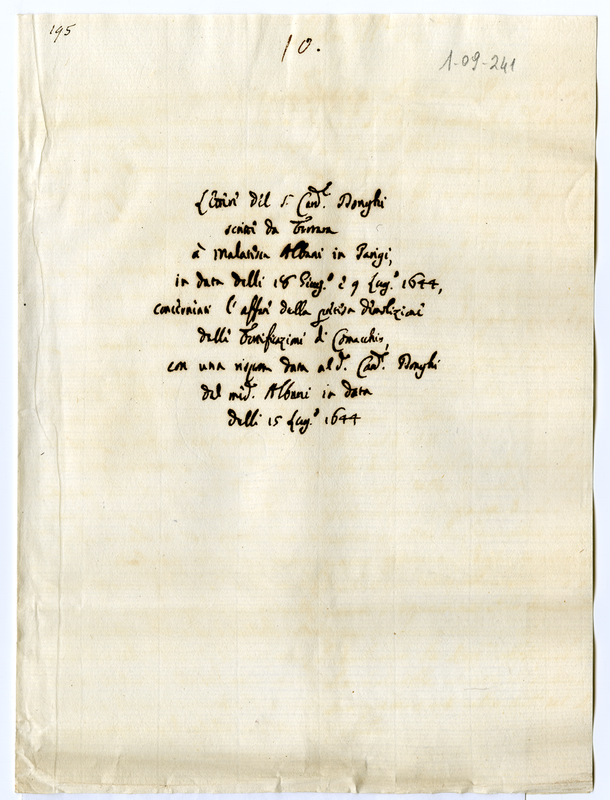 195
10.
1-09-241
Lettere del S. Card.l Donghi
scritte da Ferrara
à Malatesta Albani in Parigi,
in data delli 18 Giug.o e 9 Lug.o 1644,
concernenti l'affari della pretesa demolizione
delle fortificazioni di Comacchio,
con una risposta data al d.o Card.l Donghi
dal med.o Albani in data
delli 15 Lug.o 1644